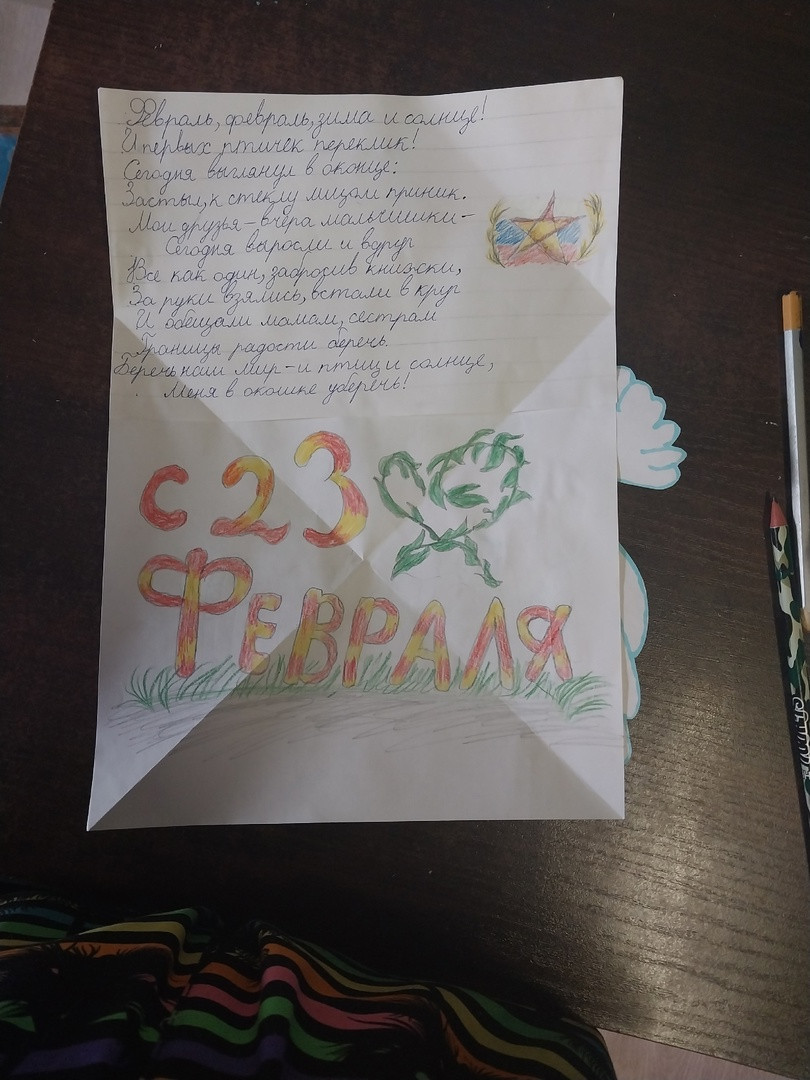 Февраль, февраль, зима и солнце!
И первых птичек переклик!
Сегодня выглянул в оконце:
Застыл, к стеклу лицом приник.
Мои друзья - вчера мальчишки -
Сегодня выросли и вдруг
Все как один, забросив книжки,
За руки взялись, встали в круг
И обещали мамам, сестрам
Границы радости беречь
Беречь наш мир - и птиц и солнце,
Меня в окошке уберечь!
с 23
Февраля